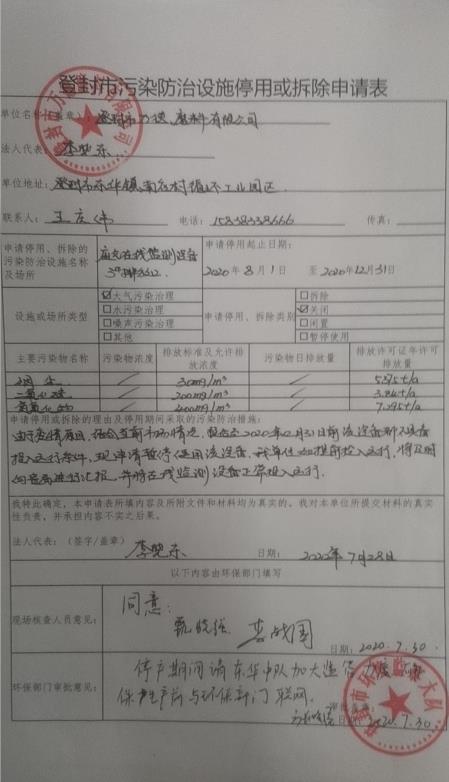 登封市污染防治设施停用或拆除申请表
单位名称（盖章）：登封市 磨料有限公司
法人代表：李晓东
单位地址：登封市东华镇 村循环工业园区
联系人：王庆伟 电话：15838338666 传真：
申请停用、拆除的污染防治设施名称及场所
在线监测设备
申请停用起止日期：
2020年8月1日 至2020年12月31日
设施或场所类型
☑大气污染治理
□水污染治理
□噪声污染治理
□其他
申请停用、拆除类别
□拆除
☑关闭
□闲置
□暂停使用
主要污染物名称 污染物浓度 排放标准及允许排放浓度 污染物日排放量 排放许可证年许可排放量
烟尘 / 30mg/m³ /
二氧化硫 / 200mg/m³ /
氮氧化物 / 400mg/m³ / 7.295t/a
申请停用或拆除的理由及停用期间采取的污染防治措施：
由于疫情原因，结合当前市场情况，我公司在2020年12月31日前该设备
投入运行条件，现申请暂停使用该设备，我单位如提前投入运行，将及时
向 进行汇报，并将在线监测设备正常投入运行。
我特此确定，本申请表所填内容及所附文件和材料均为真实的。我对本单位所提交材料的真实
性负责，并承担内容不实之后果。
法人代表：（签字/盖章） 李晓东 日期：2020年7月28日
以下内容由环保部门填写
现场核查人员意见：
同意：
日期：2020.7.30
环保部门审批意见：
停产期间请东华中队加大监管力度，确
保生产前与环保部门联网。
日期：2020.7.30